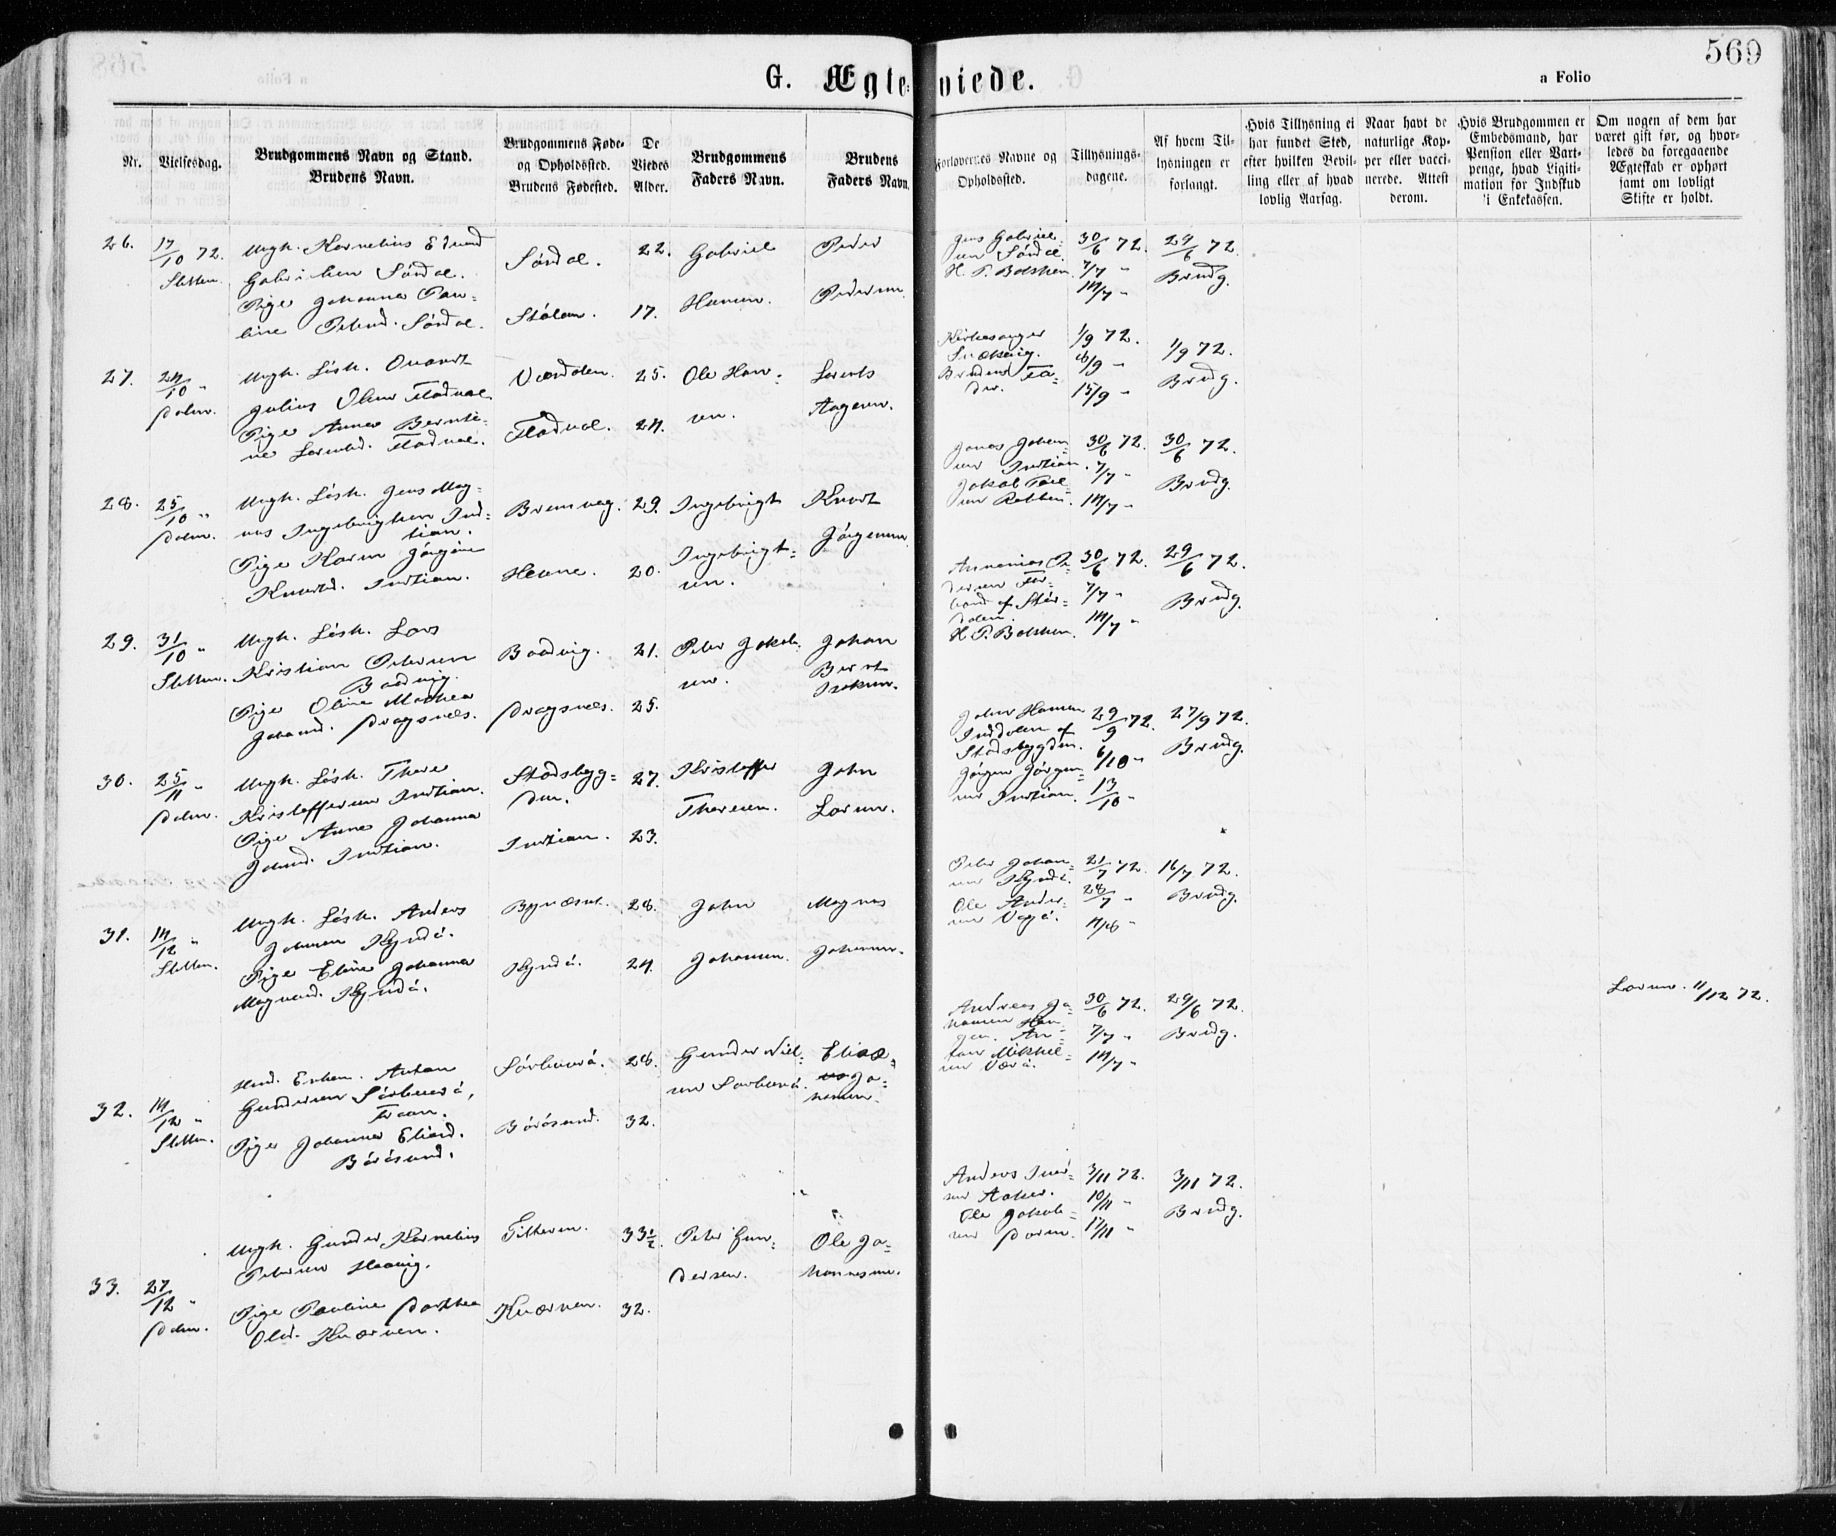 569
G. Ægteviede.
a Folio
Nr.
Vielsesdag.
Brudgommens Navn og Stand.
Brudens Navn.
Brudgommens Føde-
og Opholdssted.
Brudens Fødested.
De
Viedes
Alder.
Brudgommens
Faders Navn.
Brudens
Faders Navn.
Forlovernes Navne og
Opholdssted.
Tillysnings-
dagene.
Af hvem Til-
lysningen er
forlangt.
Hvis Tillysning ei
har fundet Sted,
efter hvilken Bevil-
ling eller af hvad
lovlig Aarsag.
Naar havt de
naturlige Kop-
per eller vacci-
nerede. Attest
derom.
Hvis Brudgommen er
Embedsmand, har
Pension eller Vart-
penge, hvad Ligiti-
mation for Indskud
i Enkekassen.
Om nogen af dem har
været gift før, og hvor-
ledes da foregaaende
Ægteskab er ophørt
samt om lovligt
Skifte er holdt.
26.
17/10 72.
Sletten.
Ungk. Kornelius Edvard
Gabrielsen Sørdal.
Pige Johanna Pau-
line Petersd. Sørdal.
Sørdal.
Stølan.
22.
17.
Gabriel
Hansen.
Peder
Pedersen.
Jens Gabriel-
sen Sørdal.
H. P. Bolsken.
30/6 72.
7/7 "
14/7 "
29/6 72.
Brudg.
27.
24/10 "
Dolm.
Ungk. Lösk.
Julius Olsen Fladval.
Pige Anna Bernti-
ne Larentsd. Fladval.
Fladval.
25.
24.
Ole Han-
sen.
Lorents
Aagesen.
Kirkesanger
Brudens Fa-
der.
1/9 72.
8/9 "
15/9 "
1/9 72.
Brudg.
28.
25/10 "
Dolm.
Ungk. Lösk. Jens Mag-
nus Ingebrigtsen Ind-
tian.
Pige Karen Jørgine
Knudsd. Indtian.
Bremsvag.
Hevne.
29.
20.
Ingebrigt
Ingebrigt-
sen.
Knudt
Jørgensen.
Jonas Johan-
sen Indtian.
Jakob Paul-
sen Rabben.
30/6 72.
7/7 "
14/7 "
30/6 72.
Brudg.
29.
31/10 "
Sletten.
Ungk. Lösk. Lars
Kristian Petersen
Badvig.
Pige Oline Mathea
Johansd. Dragsnes.
Badvig.
Dragsnes.
21.
25.
Peter Jakob-
sen.
Johan
Bernt
Isaksen.
Annanias Pe-
dersen
H. P. Bolsken.
30/6 72.
7/7 "
14/7 "
29/6 72.
Brudg.
30.
25/11 "
Dolm.
Ungk. Lösk. Thore
Kristoffersen Indtian.
Pige Anna Johanna
Johnsd. Indtian.
Stadsbyg-
den.
Indtian.
27.
23.
Kristoffer
Thoresen.
John
Larsen.
Johan Hansen
Inddalen af
Stadsbygden.
Jørgen Jørgen-
sen Indtian.
29/9 72.
6/10 "
13/10 "
27/9 72.
Brudg.
31.
14/12 "
Sletten.
Ungk. Lösk. Anders
Johansen Kjendø.
Pige Eline Johanna
Magnusd. Kjendø.
Bynæset.
Kjendø.
28.
24.
John
Johansen.
Magnus
Johansen.
Peter Johan-
sen Kjendø.
Ole Ander-
sen Vagø.
21/7 72.
28/7 "
4/8 "
16/7 72.
Brudg.
32.
14/12 "
Sletten.
Anton
Gundersen Sørburø,
Pige Johanna Eliasd.
Børøsund.
Sørburø.
Børøsund.
28.
32.
Gunder Niel-
sen Sørburø.
Elias
Jo-
hansen.
Andreas Jo-
hansen
An-
ton Mikkel-
sen Værø.
30/6 72.
7/7 "
14/7 "
29/6 72.
Brudg.
Larsen. 11/12 72.
33.
27/12 "
Dolm.
Ungk. Gunder Kornelius
Petersen Haavig.
Pige Pauline Dorthea
Olsd. Knarven.
Titheren.
Knarven.
33½
32.
Peter Gun-
dersen.
Ole Jo-
hannesen.
Anders Iver-
sen Aaker.
Ole Jakob-
sen
3/11 72.
10/11 "
17/11 "
3/11 72.
Brudg.